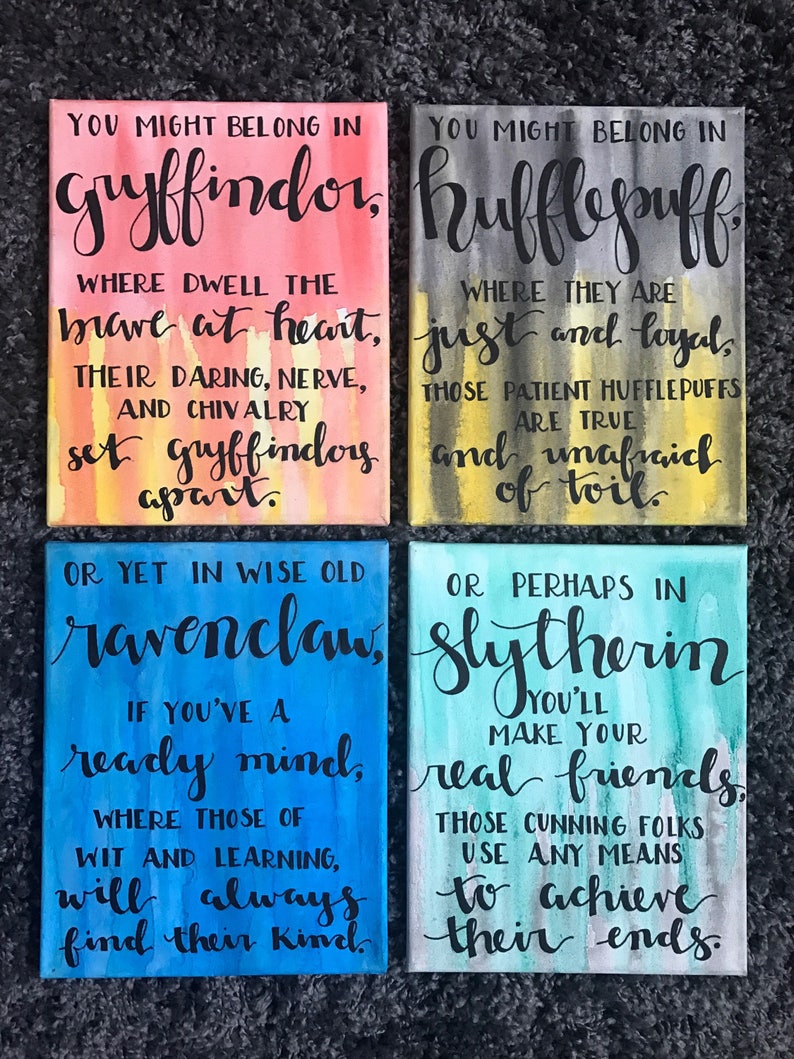 YOU MIGHT BELONG IN
gryffindor,
WHERE DWELL THE
brave at heart,
THEIR DARING, NERVE,
AND CHIVALRY
set gryffindors
apart.
YOU MIGHT BELONG IN
hufflepuff,
WHERE THEY ARE
just and loyal,
THOSE PATIENT HUFFLEPUFFS
ARE TRUE
and unafraid
of toil.
OR YET IN WISE OLD
ravenclaw,
IF YOU'VE A
ready mind,
WHERE THOSE OF
WIT AND LEARNING,
will always
find their kind.
OR PERHAPS IN
slytherin
YOU'LL
MAKE YOUR
real friends,
THOSE CUNNING FOLKS
USE ANY MEANS
to achieve
their ends.